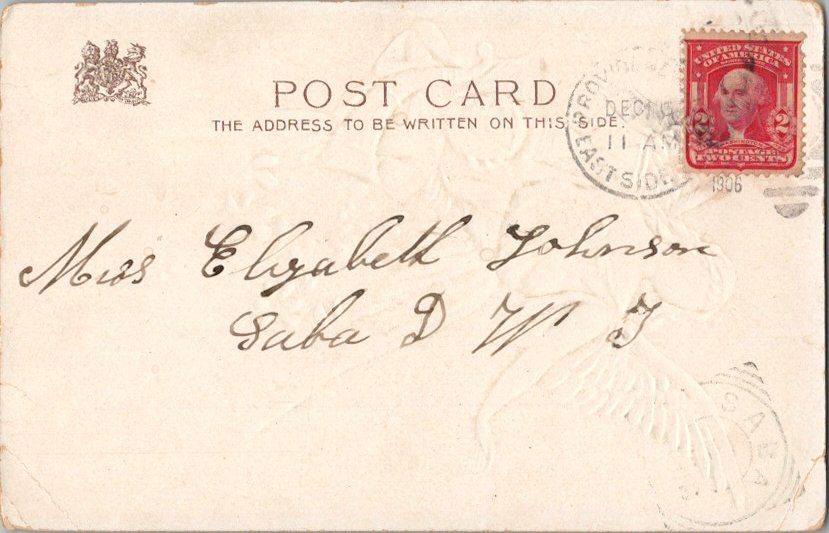 POST CARD
THE ADDRESS TO BE WRITTEN ON THIS SIDE.
DEC 
11 AM
EAST SIDE
1906
UNITED STATES
OF AMERICA
2 2
POSTAGE
TWO CENTS
Miss Elizabeth Johnson
Saba D W I
SABA